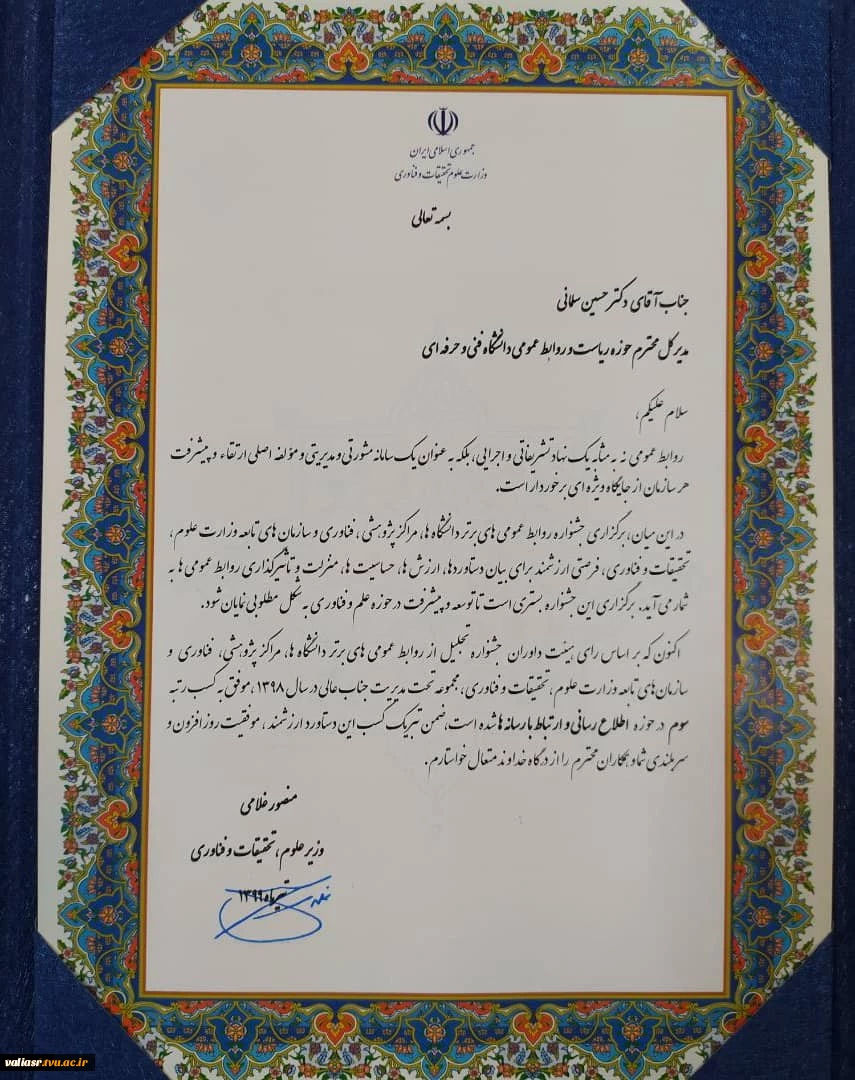 جمهوری اسلامی ایران
وزارت علوم تحقیقات و فناوری
بسمه تعالی
جناب آقای دکتر حسین سلمانی
مدیر کل محترم حوزه ریاست و روابط عمومی دانشگاه فنی و حرفه ای
سلام علیکم،
روابط عمومی نه به مثابه یک نهاد تشریفاتی و اجرایی، بلکه به عنوان یک سامانه مشورتی و مدیریتی و مؤلفه اصلی ارتقاء و پیشرفت
هر سازمان از جایگاه ویژه ای برخوردار است.
در این میان، برگزاری جشنواره روابط عمومی های برتر دانشگاه ها، مراکز پژوهشی، فناوری و سازمان های تابعه وزارت علوم،
تحقیقات و فناوری، فرصتی ارزشمند برای بیان دستاوردها، ارزش ها، حساسیت ها، منزلت و تأثیرگذاری روابط عمومی ها به
شمار می آید. برگزاری این جشنواره بستری است تا توسعه و پیشرفت در حوزه علم و فناوری به شکل مطلوبی نمایان شود.
اکنون که بر اساس رای هیئت داوران جشنواره تجلیل از روابط عمومی های برتر دانشگاه ها، مراکز پژوهشی، فناوری و
سازمان های تابعه وزارت علوم، تحقیقات و فناوری، مجموعه تحت مدیریت جناب عالی در سال ۱۳۹۸، موفق به کسب رتبه
سوم در حوزه اطلاع رسانی و ارتباط با رسانه ها شده است، ضمن تبریک کسب این دستاورد ارزشمند، موفقیت روز افزون و
سربلندی شما و همکاران محترم را از درگاه خداوند متعال خواستارم.
منصور غلامی
وزیر علوم، تحقیقات و فناوری
تیر ماه ۱۳۹۹
valiasr.tvu.ac.ir